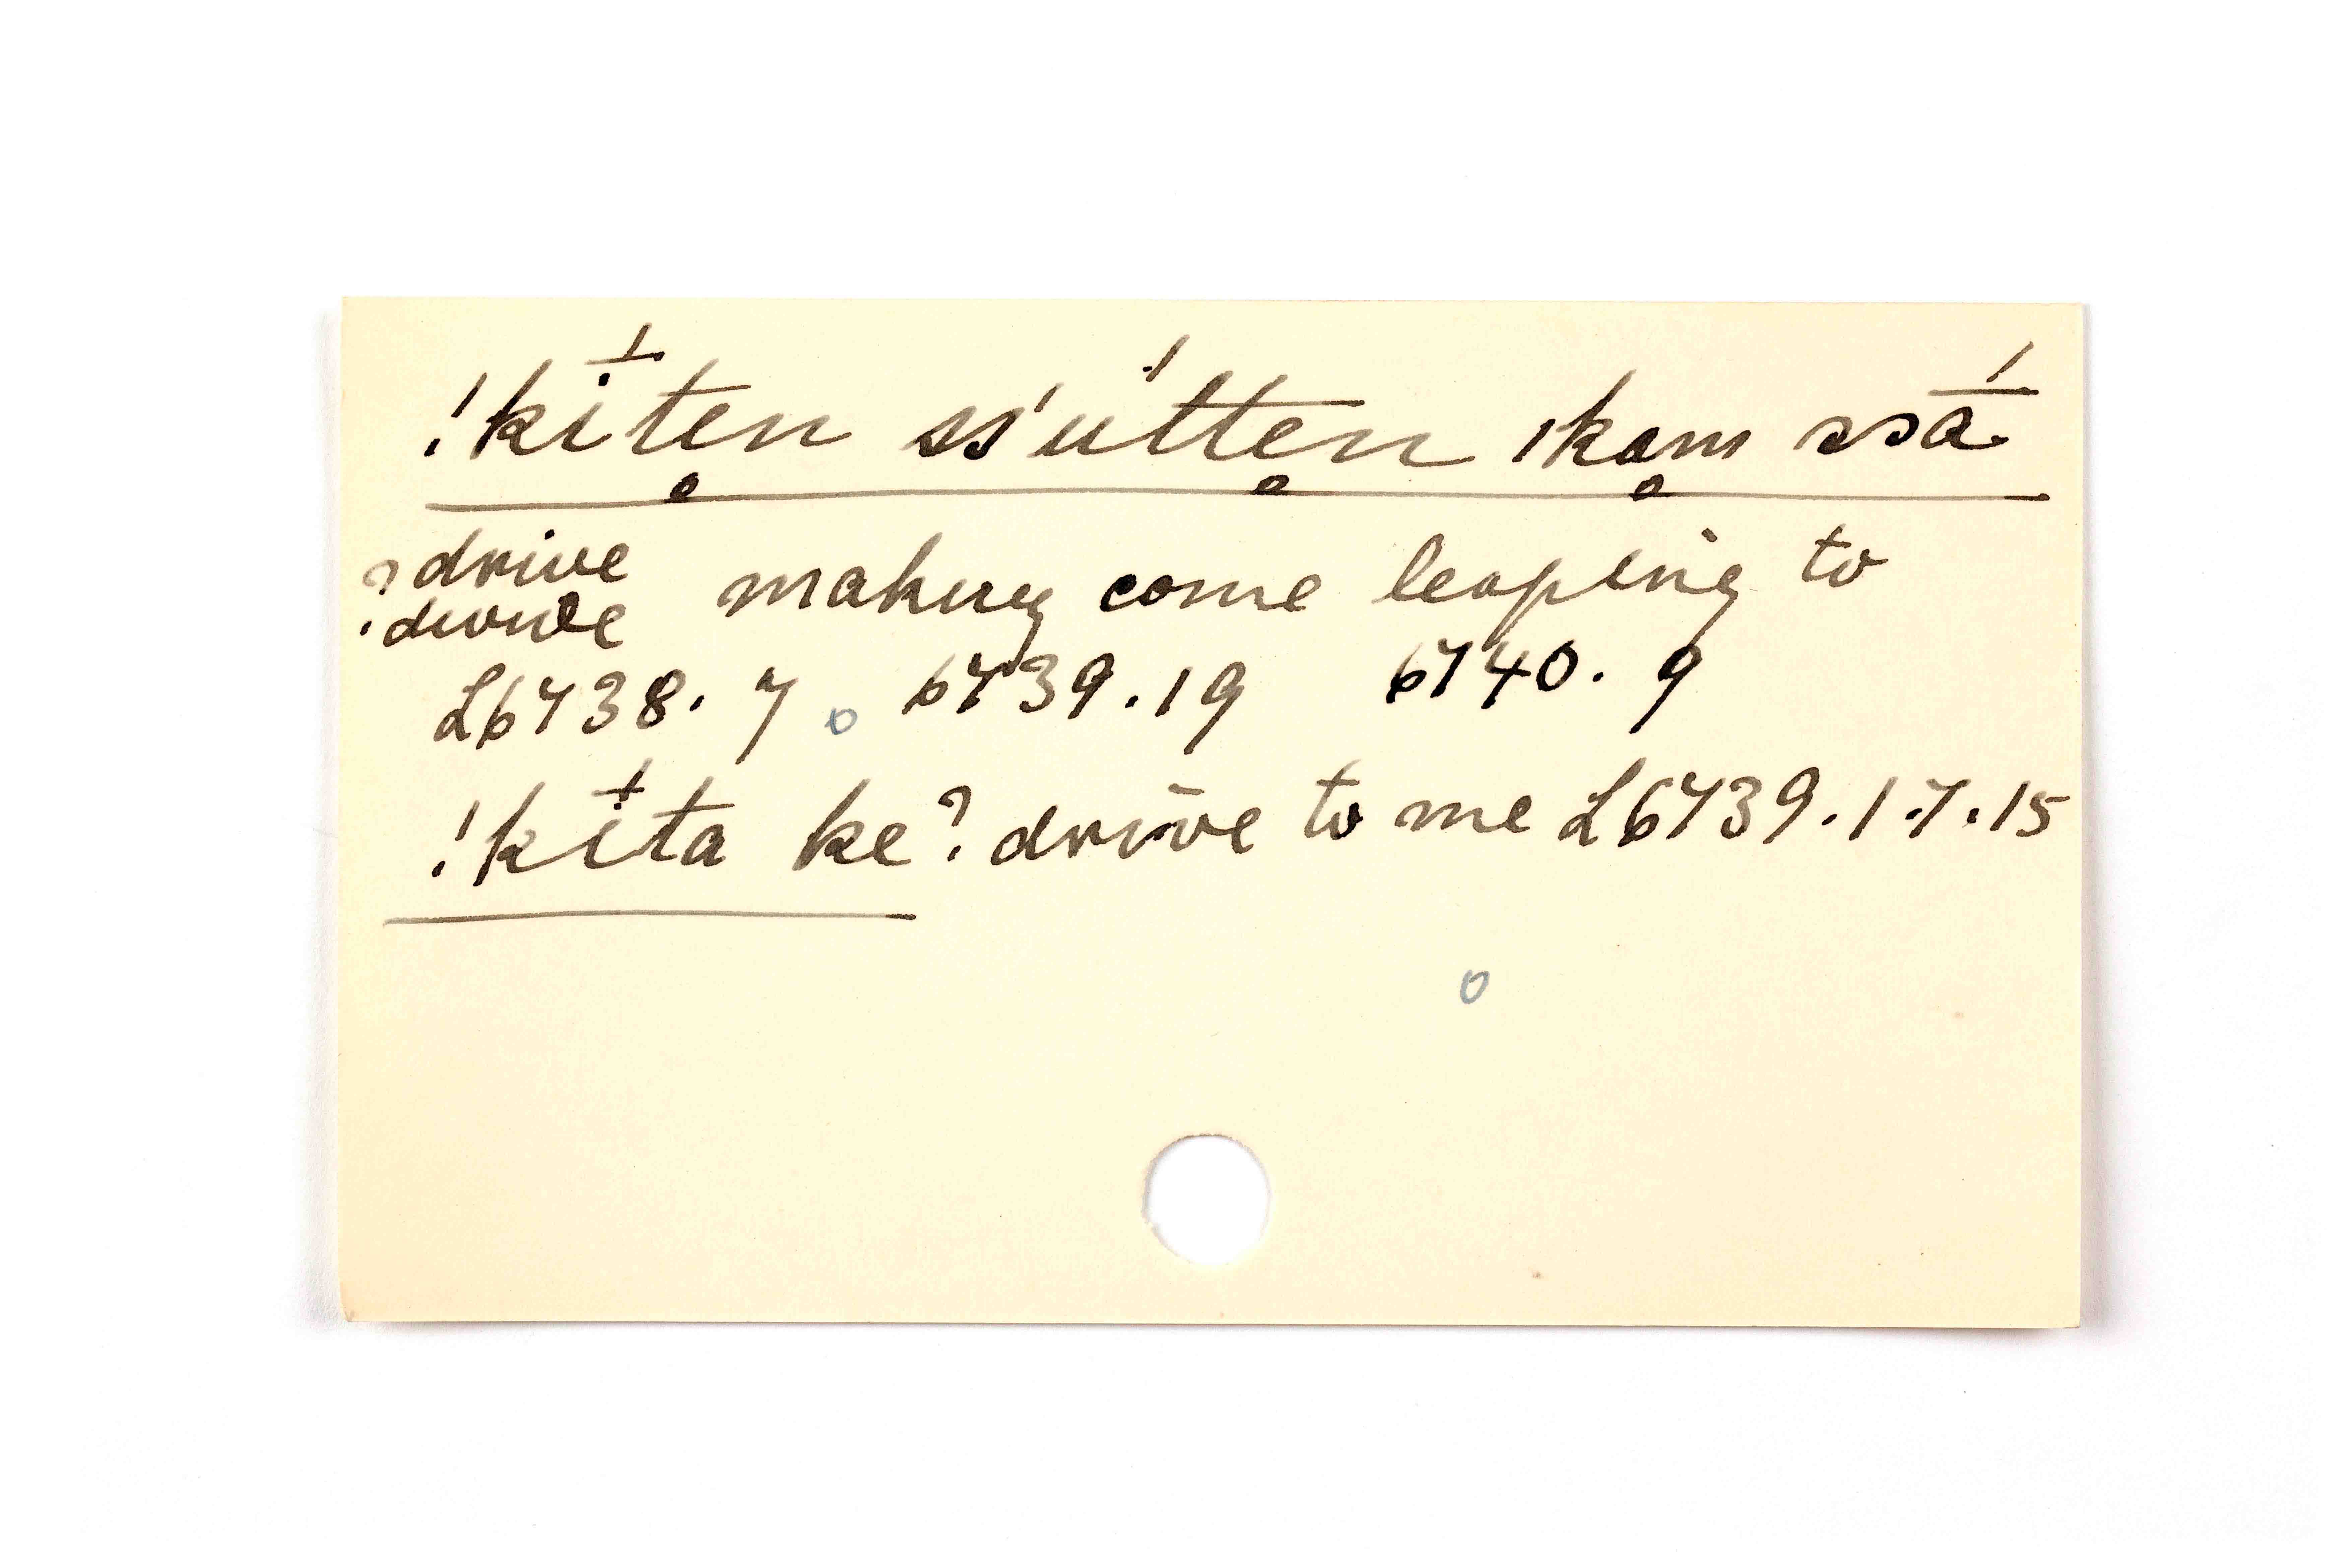 !kī́ten̥ ss'útten̥ |kam̥ ssā́
? drive making come leaping to
? divide
L6738.7 6739.19 6740.9
!kī́ta ke ? drive to me L6739.1.7.15